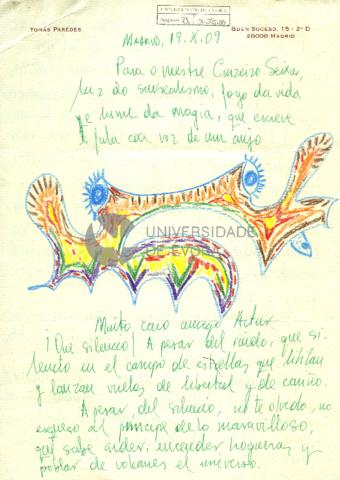 TOMÁS PAREDES
BUEN SUCESO, 15 - 2º D
28008 MADRID
Madrid, 19.X.09
Para o mestre Cruzeiro Seixas,
luz do surrealismo, fogo da vida
e lume da magia, que escreve
e fala coa voz de um anjo
UNIVERSIDADE
DE ÉVORA
Muito caro amigo Artur
¡Qué silencio! A pesar del ruido, que si-
lencio en el campo de estrellas que titilan
y lanzan vuelos de libertad y de cariño.
A pesar, del silencio, no te olvido, no
esqueço al príncipe de lo maravilloso,
que sabe arder, encender hogueras y
poblar de volcanes el universo.